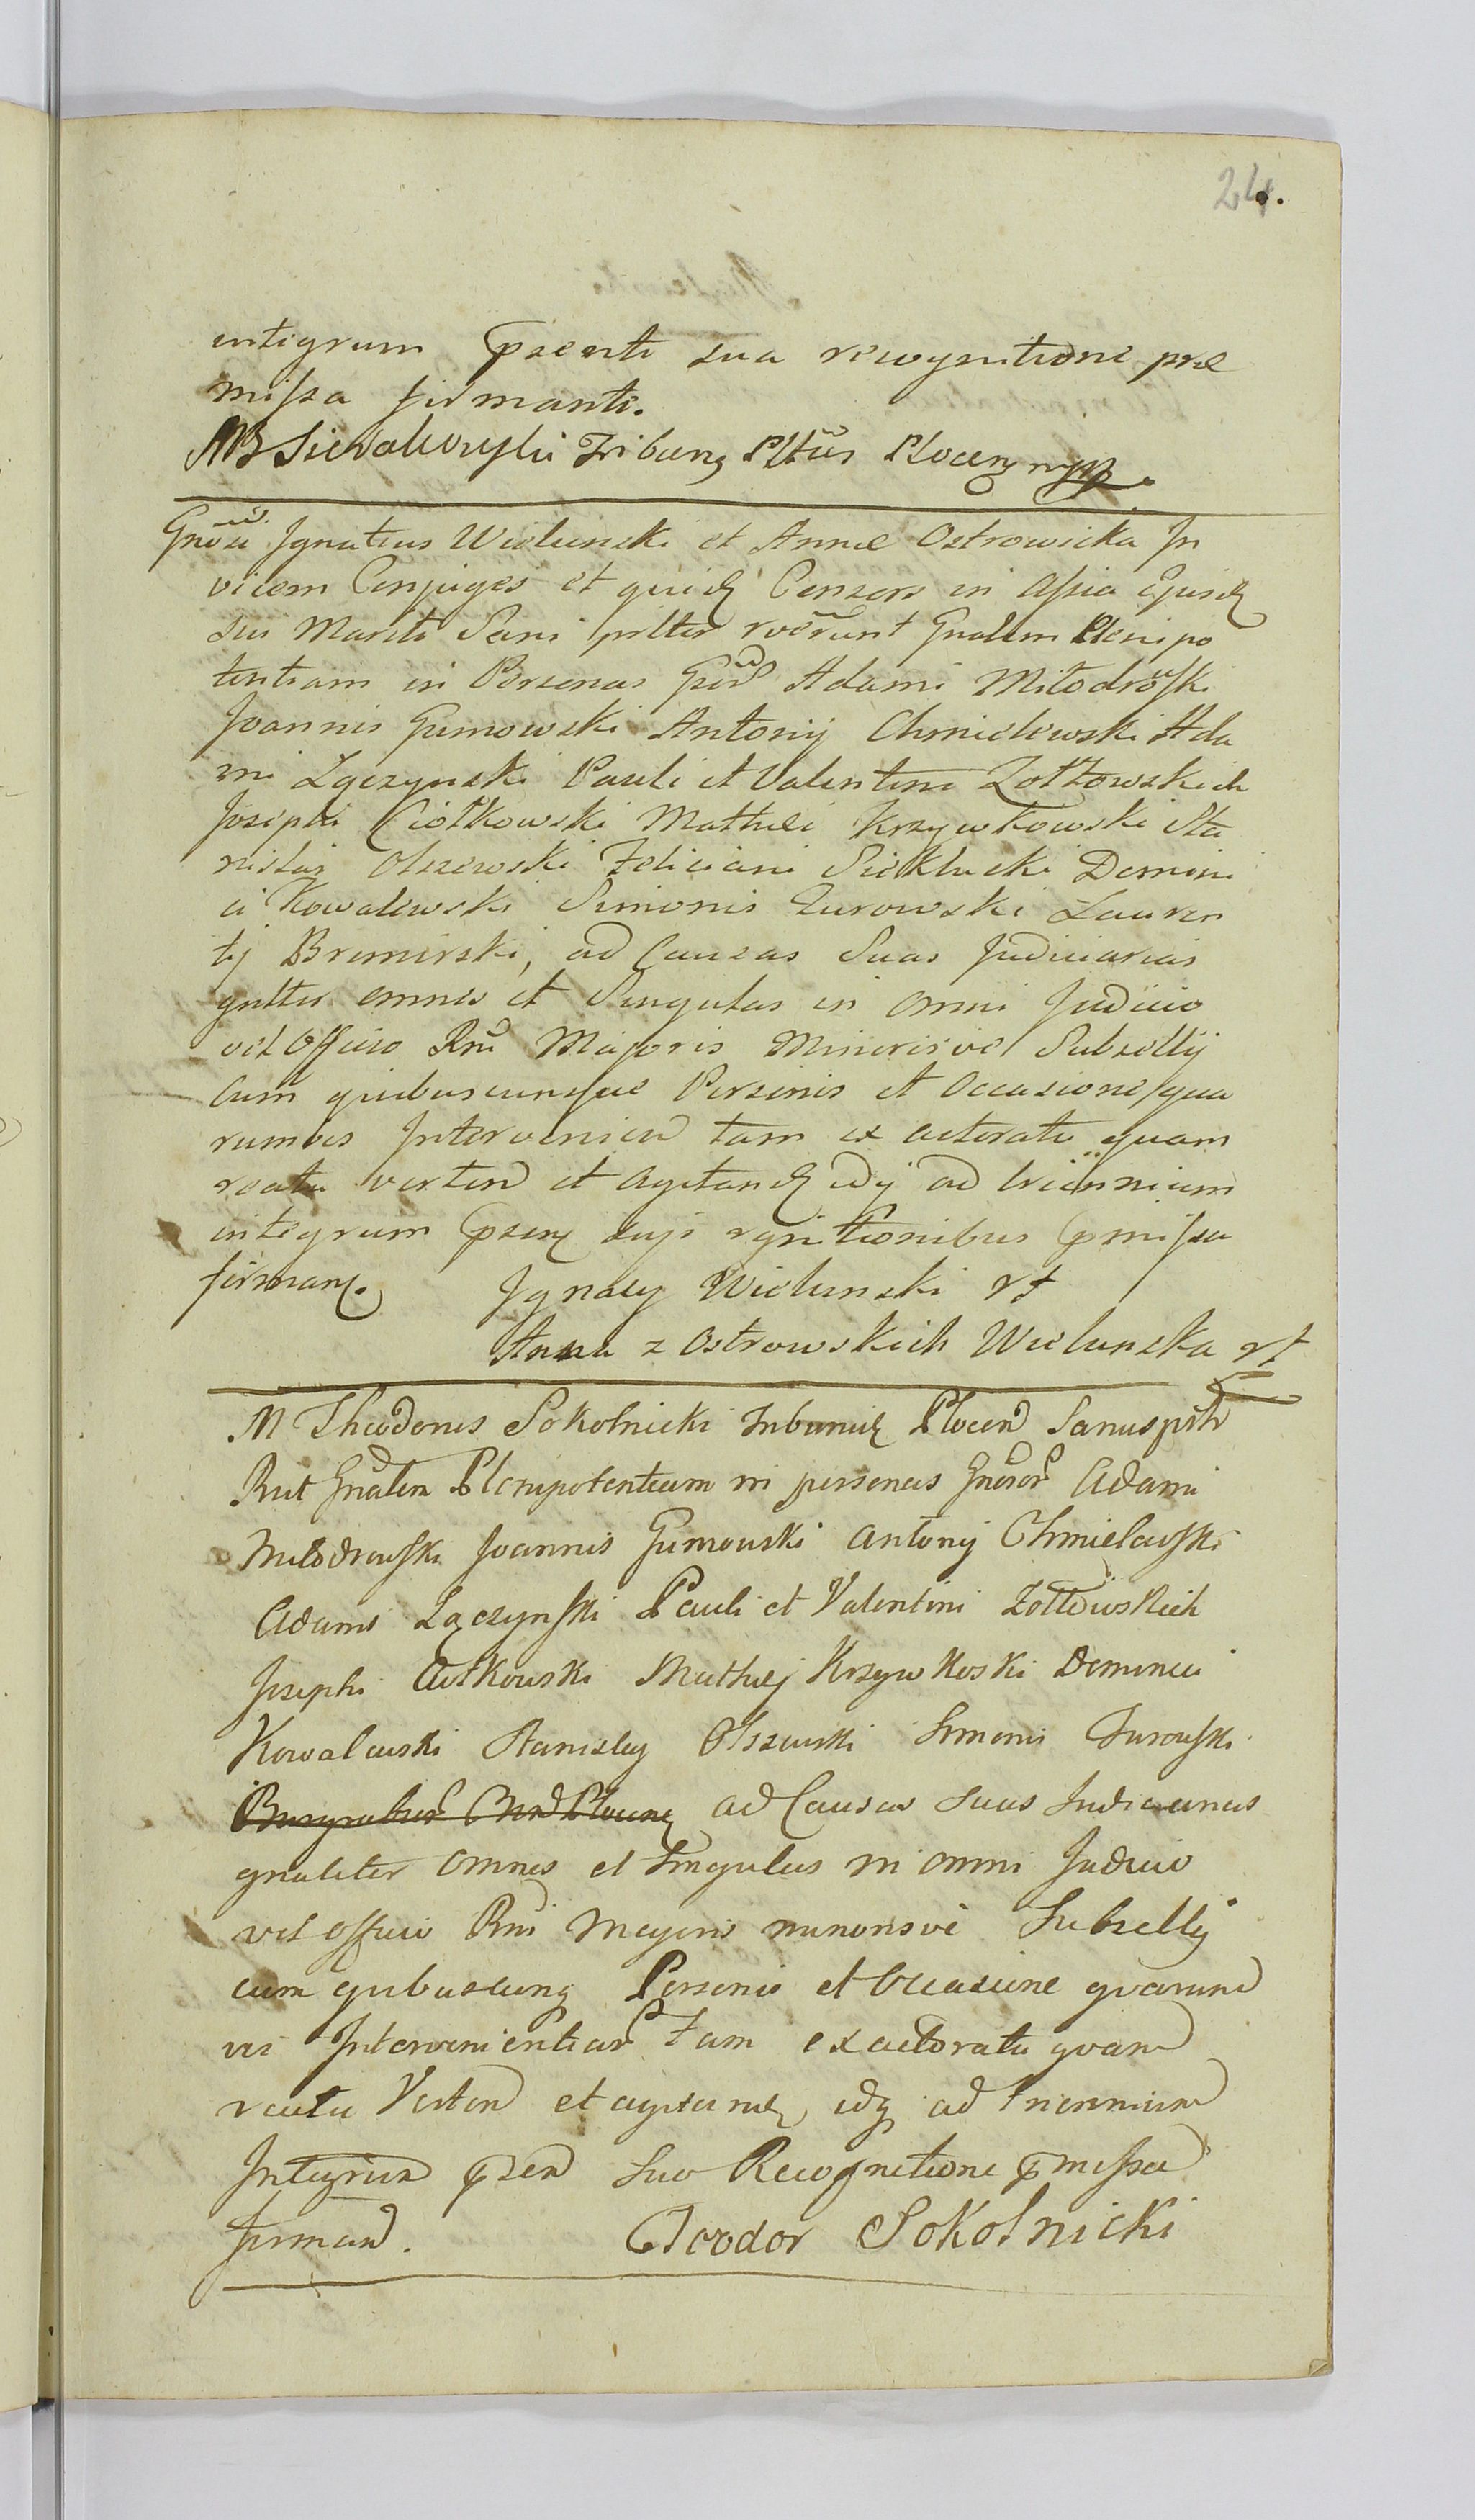 24.
integrum psenti sua recognitione præ
missa firmanti.
Gnosi Ignatius Wielunski et Annæ Ostrowicka In
vicem Conjuges et quidz Consors in assia Ejusdz
sui Mariti Sani pilter roćrunt Gnalem Plenipo
tentiam in Personas Gsor Adami Miłodrowski
Joannis Gumowski Antonij Chmielewski Ada
mi Łączynski Pauli et Valentini Zołtowskich
Josephi Ciołkowski Mathæi Krzywkowski Sta
nislai Olszewski Feliciani Sieklucki Domini
ci Kowalewski Simonis Zurowski Lauren
tij Bromirski, ad Causas Suas Judiciarias
gnltter omnes et Singulas in omni Judicio
vel Officio Rni Majoris Minorisve Subsellij
cum quibuscunque Personis et Occasione qua
rumvis Intervenien tam ex actoratu quam
reatu verten et agitandz idq ad triennium
integrum psenz suis rgnitionibus pmissa
firmanz. Ignacy Wielunski rt
Anna z Ostrowskich Wielunska rt
M Theodorus Sokolnicki Tribunidz Plocen Sanus pltr
Rut Gnalem Plenipotentiam in personas Gnosor Adami
Miłodrowski Joannis Gumowski Antonij Chmielewski
Adami Łączynski Pauli et Valentini Zołtowskich
Josephi Ciołkowski Mathæj Krzywkoski Dominici
Kowalewski Stanislaj Olszewski Simonis Zurowski
ad Causas Suas Judiciarias
gnaliter omnes et Singulas in omni Judicio
vel officio Rni Majoris minorisve Subsellij
cum quibuscunq Personis et Occasione quarum
vis Intervenientiar tam ex actoratu quam
reatu Verten et agitandz, idq ad triennium
Integrum psen Suo Recognitione pmissa
firman. Teodor Sokolnicki